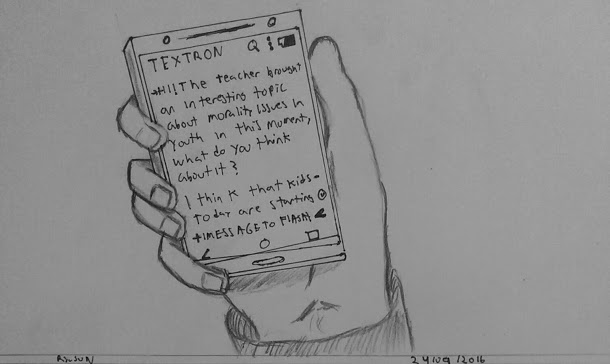 TEXTRON
→Hi! The teacher brought
an interesting topic
about morality issues in
youth in this moment,
what do you think
about it?
I think that kids
today are starting
+|MESSAGE TO FLASH|
24/09/2016